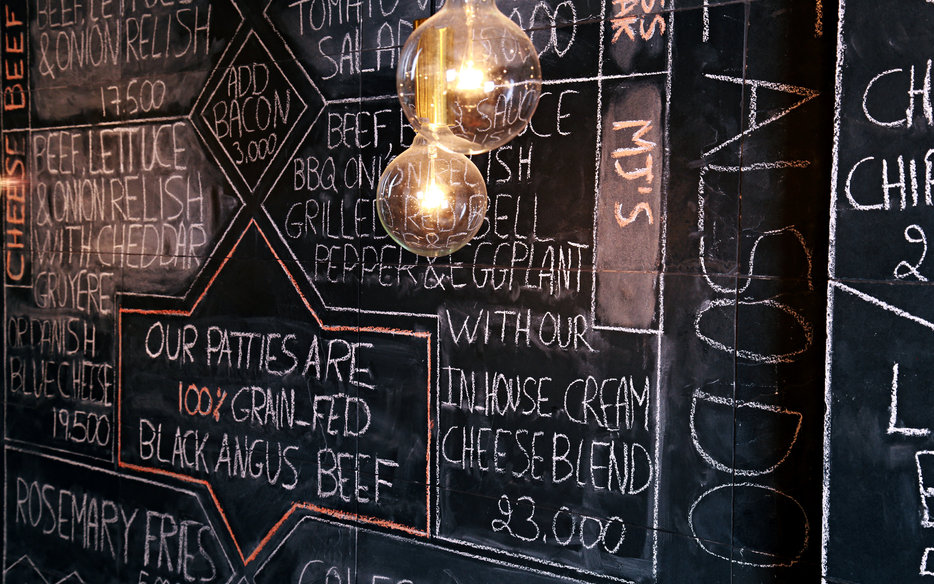 & ONION RELISH
17.500
CHEESE BEEF
BEEF, LETTUCE
& ONION RELISH
WITH CHEDDAR
GRUYERE
OR DANISH
BLUE CHEESE
19.500
ADD
BACON
3,000
TOMATO
SALAD
BEEF, SAUCE
BBQ
GRILLED BELL
PEPPER & EGGPLANT
WITH OUR
IN-HOUSE CREAM
CHEESE BLEND
23.000
MJ'S
OUR PATTIES ARE
100% GRAIN-FED
BLACK ANGUS BEEF
ROSEMARY FRIES
ALSO DO
CH
CHIP
2
L